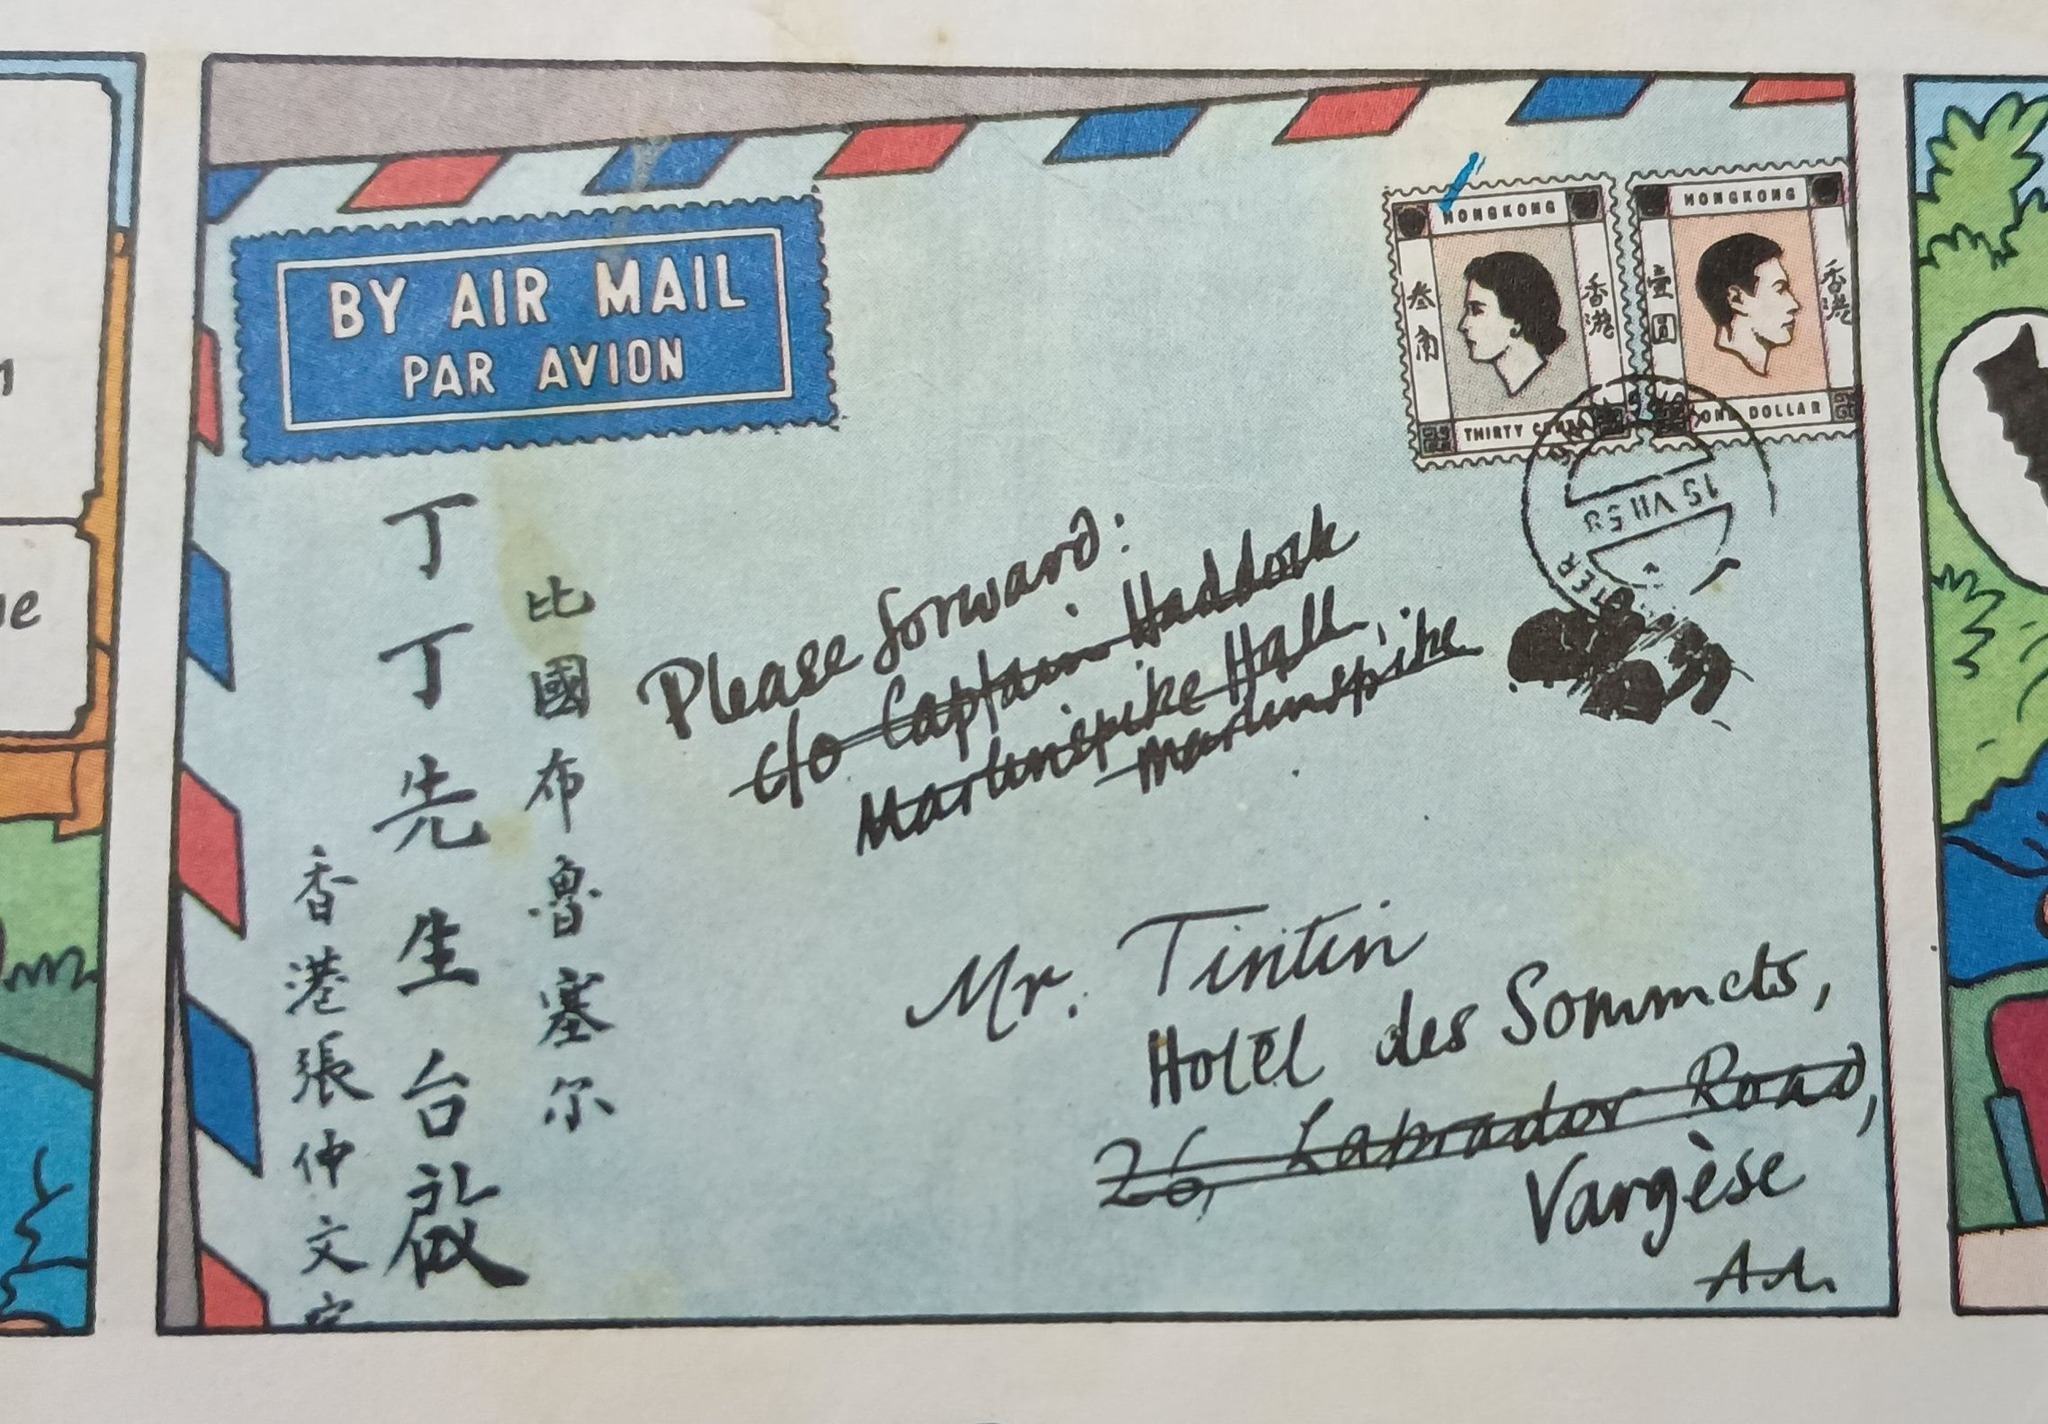 BY AIR MAIL
PAR AVION
HONGKONG
叁角
香港
HONGKONG
壹圓
香港
ONE DOLLAR
THIRTY
15 VII 58
比國布魯塞尔
丁丁先生台啟
香港張仲文
Please forward:
c/o Captain Haddock
Marlinspike Hall,
Marlinspike
Mr. Tintin
Hotel des Sommets,
26, Labrador Road,
Vargèse